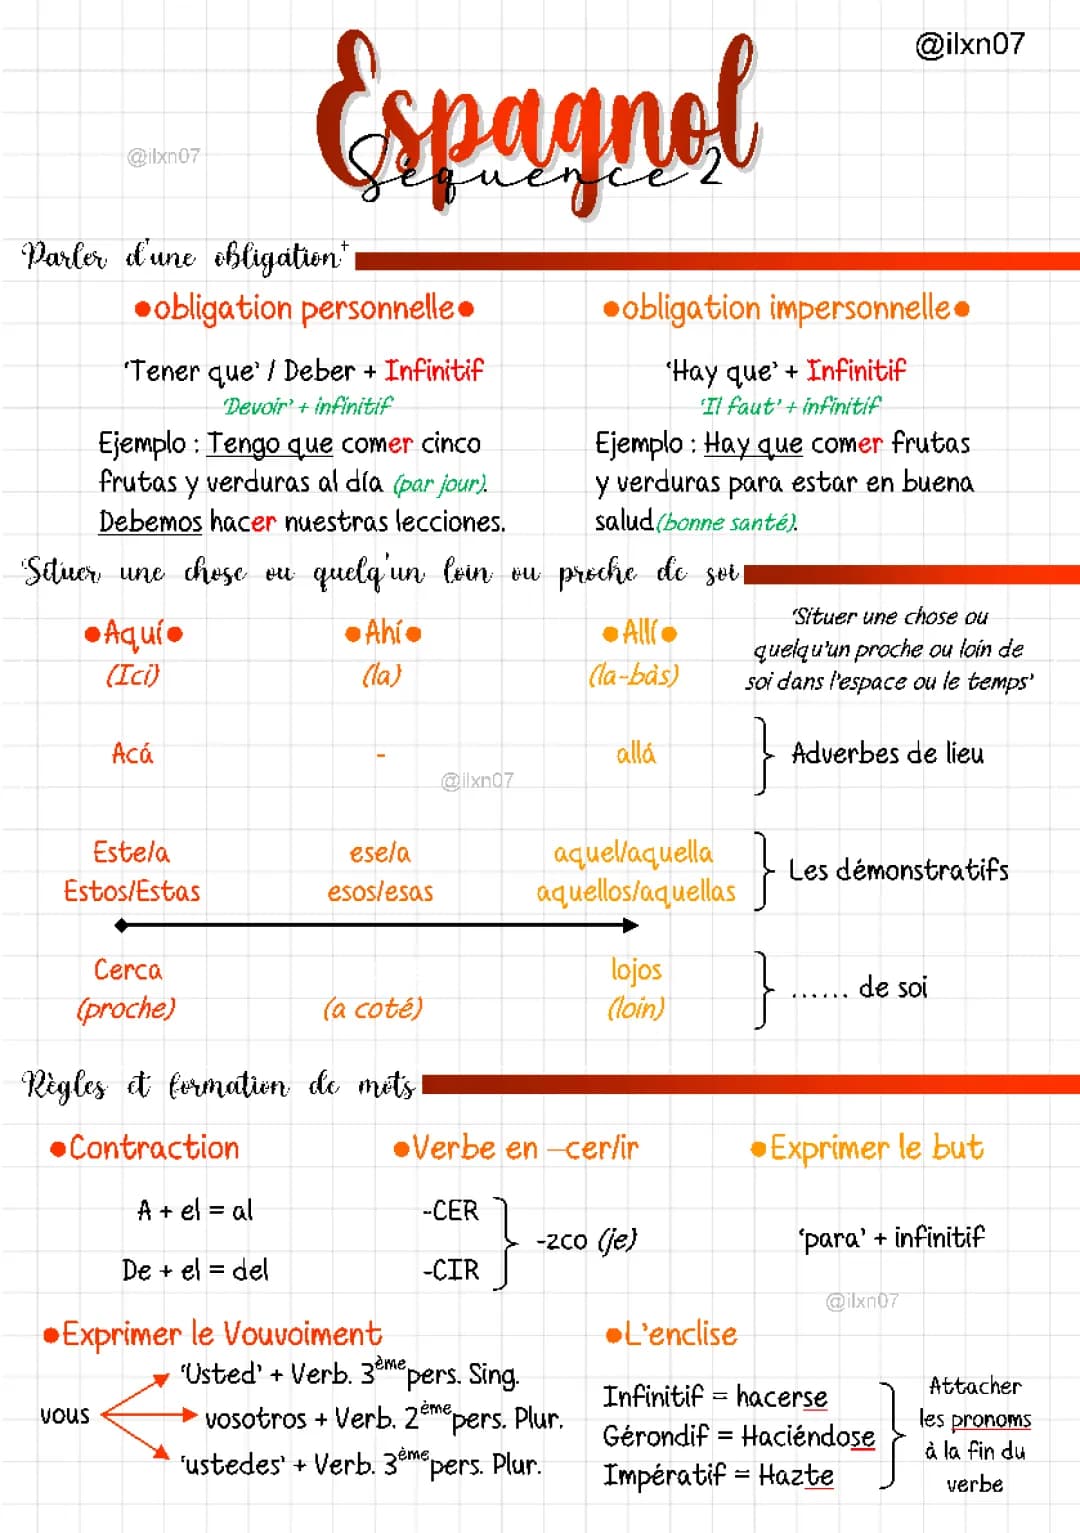 @ilxn07
Espagnol
Séquence 2
@ilxn07
Parler d'une obligation+
•obligation personnelle•
'Tener que' / Deber + Infinitif
'Devoir' + infinitif
Ejemplo : Tengo que comer cinco
frutas y verduras al día (par jour).
Debemos hacer nuestras lecciones.
•obligation impersonnelle•
'Hay que' + Infinitif
'Il faut' + infinitif
Ejemplo : Hay que comer frutas
y verduras para estar en buena
salud (bonne santé).
Situer une chose ou quelq'un loin ou proche de soi
•Aquí• •Ahí• •Allí•
(Ici) (la) (la-bàs)
'Situer une chose ou
quelqu'un proche ou loin de
soi dans l'espace ou le temps'
Acá - allá Adverbes de lieu
@ilxn07
Este/a ese/a aquel/aquella
Estos/Estas esos/esas aquellos/aquellas
Les démonstratifs
Cerca lojos
(proche) (a coté) (loin)
...... de soi
Règles et formation de mots
•Contraction
A + el = al
De + el = del
•Verbe en –cer/ir
-CER
-CIR
-zco (je)
•Exprimer le but
'para' + infinitif
@ilxn07
•Exprimer le Vouvoiment
vous
'Usted' + Verb. 3ème pers. Sing.
vosotros + Verb. 2ème pers. Plur.
'ustedes' + Verb. 3ème pers. Plur.
•L'enclise
Infinitif = hacerse
Gérondif = Haciéndose
Impératif = Hazte
Attacher
les pronoms
à la fin du
verbe